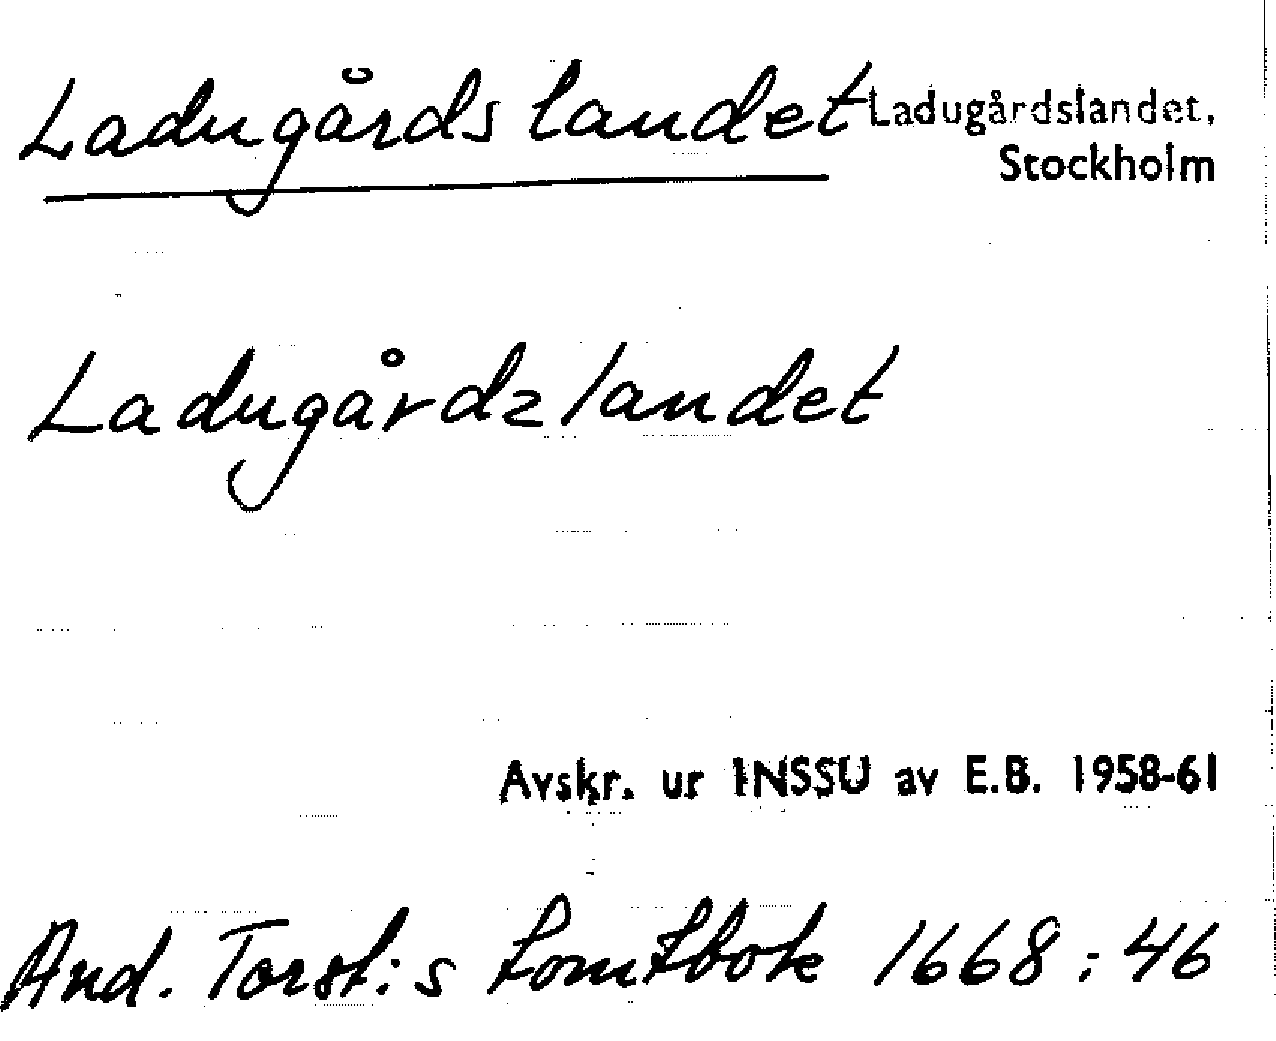 Ladugårdslandet Ladugårdslandet,
Stockholm
Ladugårdzlandet
Avskr. ur INSSU av E.B. 1958-61
And. Torst:s tomtbok 1668:46